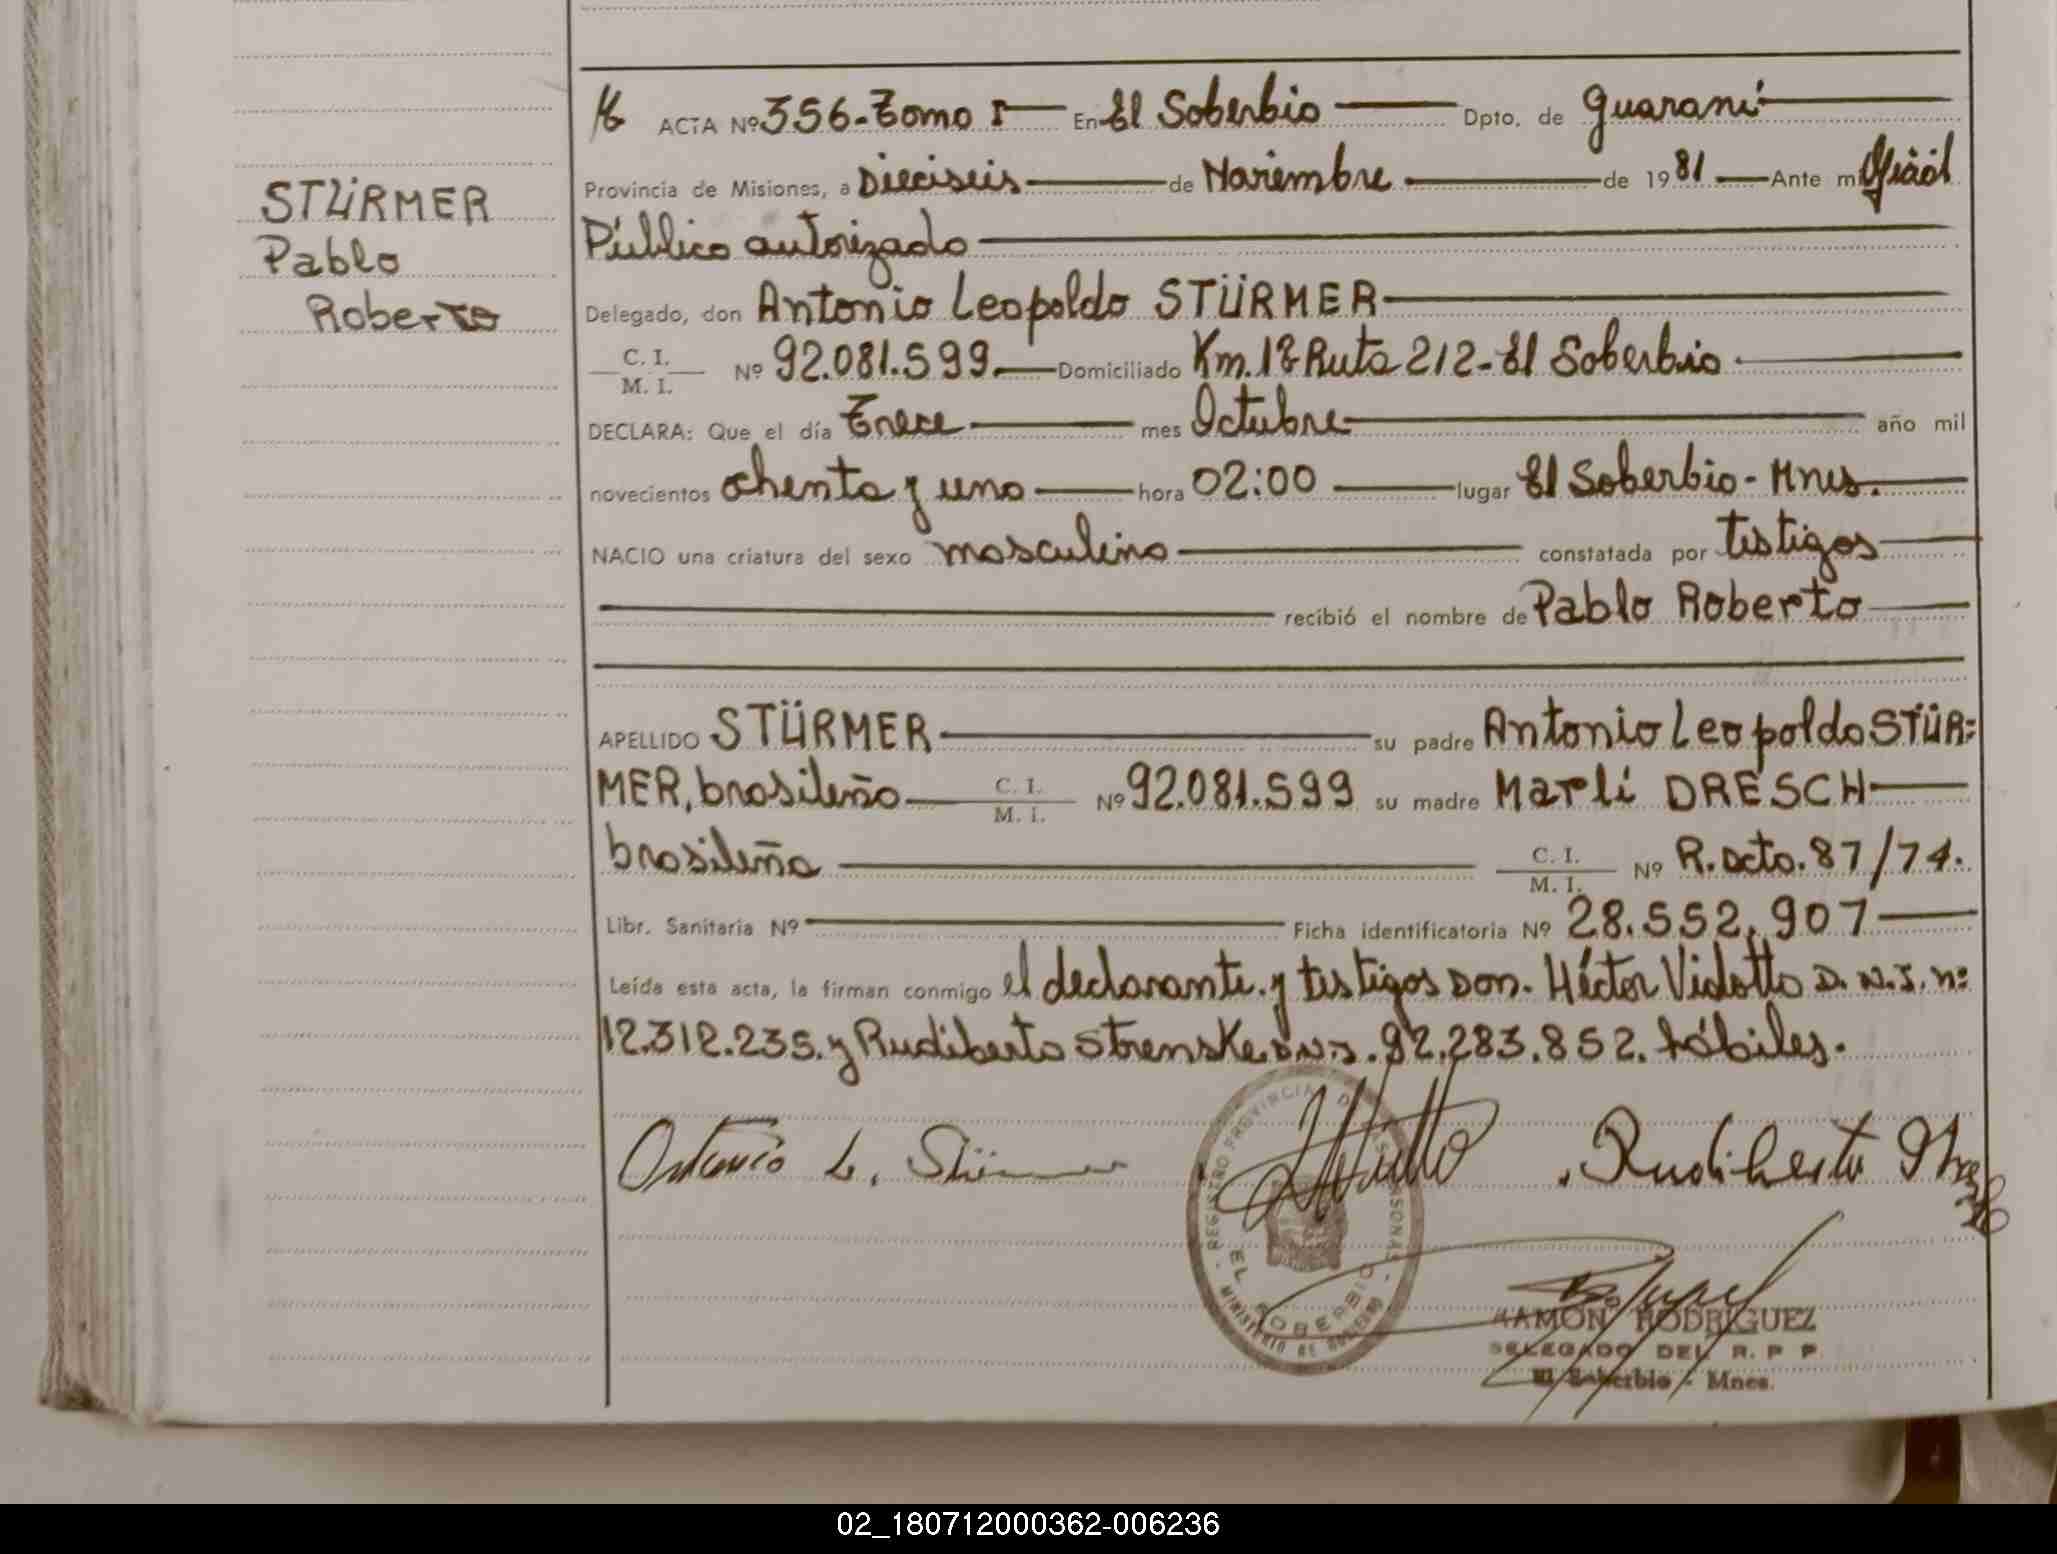 STÜRMER
Pablo
Roberto
ACTA Nº 356-Tomo I En El Soberbio Dpto. de Guaraní
Provincia de Misiones, a Dieciseis de Noviembre de 1981 Ante mi Oficial
Público autorizado
Delegado, don Antonio Leopoldo STÜRMER
C. I.
M. I. Nº 92.081.599. Domiciliado Km. 18 Ruta 212 - El Soberbio
DECLARA: Que el día Trece mes Octubre año mil
novecientos ochenta y uno hora 02:00 lugar El Soberbio - Mnes.
NACIO una criatura del sexo masculino constatada por testigos
recibió el nombre de Pablo Roberto
APELLIDO STÜRMER su padre Antonio Leopoldo STÜR=
MER, brasileño C. I.
M. I. Nº 92.081.599 su madre Marli DRESCH
brasileña C. I.
M. I. Nº R. acta. 87/74.
Libr. Sanitaria Nº Ficha identificatoria Nº 28.552.907
Leída esta acta, la firman conmigo el declarante. y testigos Don. Héctor Vidotto D.N.I. nº
12.312.235. y Rudiberto Strenske D.N.I. 92.283.852. hábiles.
Antonio L. Stürmer
Rudiberto
REGISTRO PROVINCIAL DE LAS PERSONAS
EL SOBERBIO
MINISTERIO DE GOBIERNO
RAMON RODRIGUEZ
DELEGADO DEL R. P. P.
El Soberbio - Mnes.
02_180712000362-006236